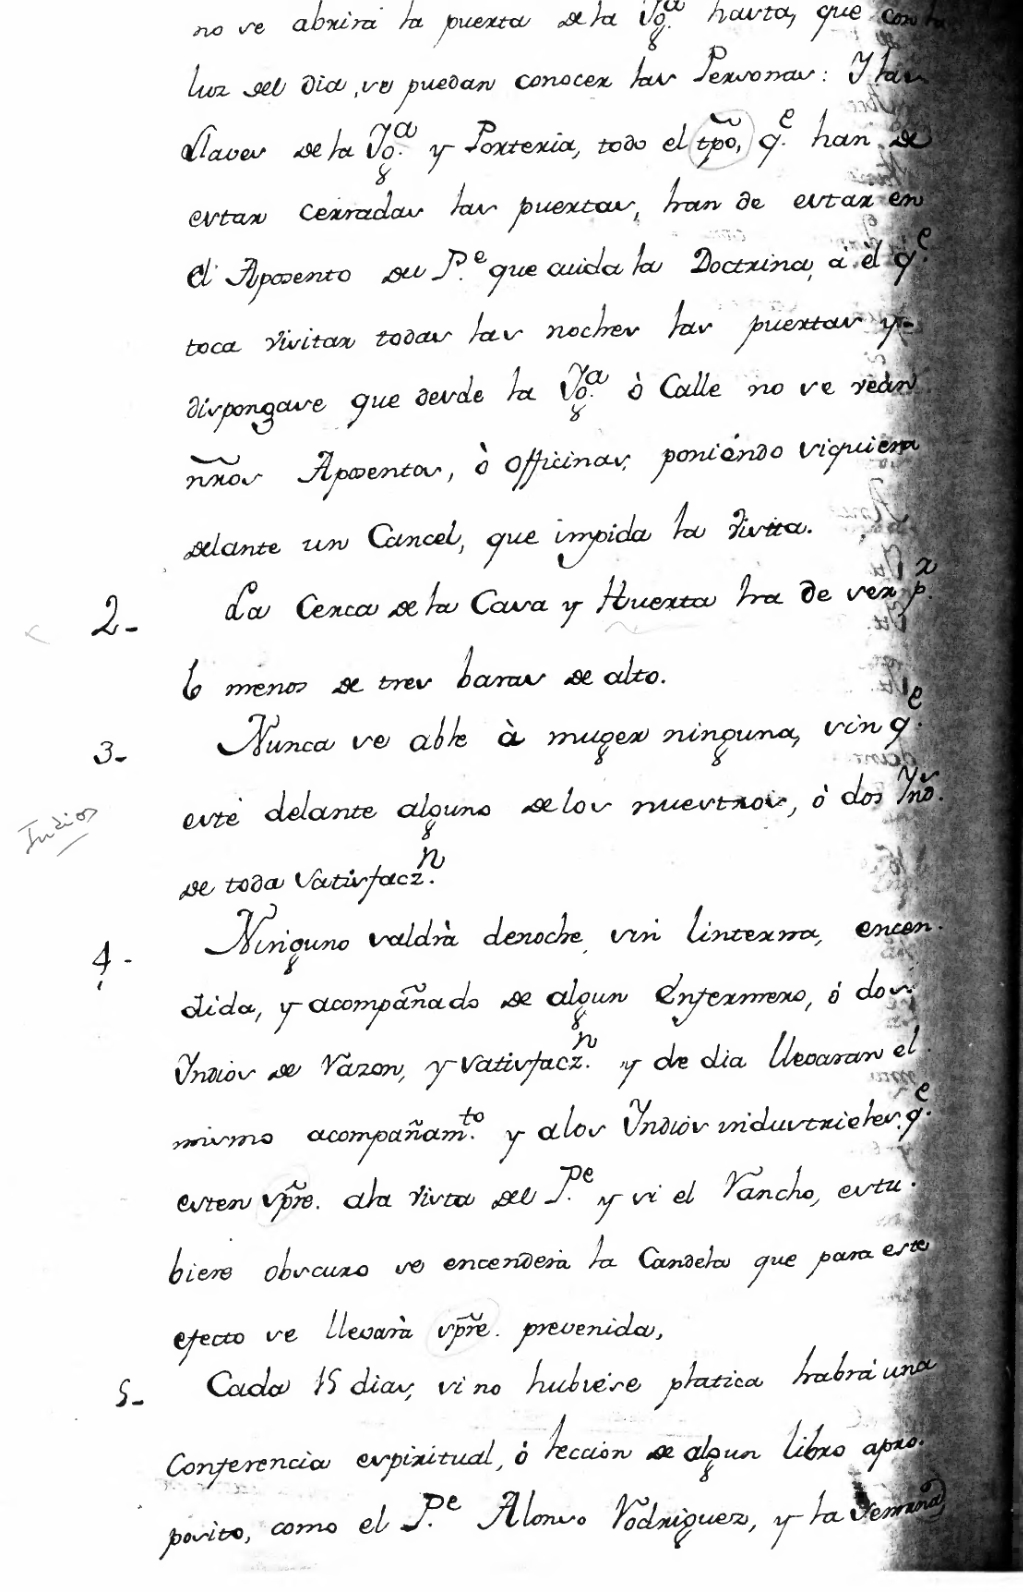 no se abrirá la puerta de la Yg.ª hasta, que con la
luz del dia, se puedan conocer las Personas: Y las
Llaves de la Yg.ª y Porteria, todo el tpõ, q.e han de
estar cerradas las puertas, han de estar en
el Aposento del P.e que cuida la Doctrina, á él q.e
toca visitar todas las noches las puertas y-
dispongase que desde la Yg.ª ò Calle no se vean
nr̃os Aposentos, ò officinas, poniéndo siquiera
delante un Cancel, que impida la vista.
2- La Cerca de la Casa y Huerta ha de ser p.r
lo menos de tres baras de alto.
3- Nunca se able à muger ninguna, sin q.e
esté delante alguno de los nuestros, ò dos Ind.s
Indios
de toda satisfacz.n
4- Ninguno saldrà denoche, sin linterna, encen-
dida, y acompañado de algun Enfermero, ó dos
Yndios de razon, y satisfacz.n y de dia llevaran el
mismo acompañam.to y a los Yndios industrieles q.e
esten sp̃re. a la vista del P.e y si el Rancho, estu-
biere obscuro se encenderà la Candela que para este
efecto se llevarà sp̃re. prevenida,
5- Cada 15 dias, si no hubiése platica habrá una
Conferencia espiritual, ó leccion de algun libro apro-
posito, como el P.e Alonso Rodriguez, y la Semana